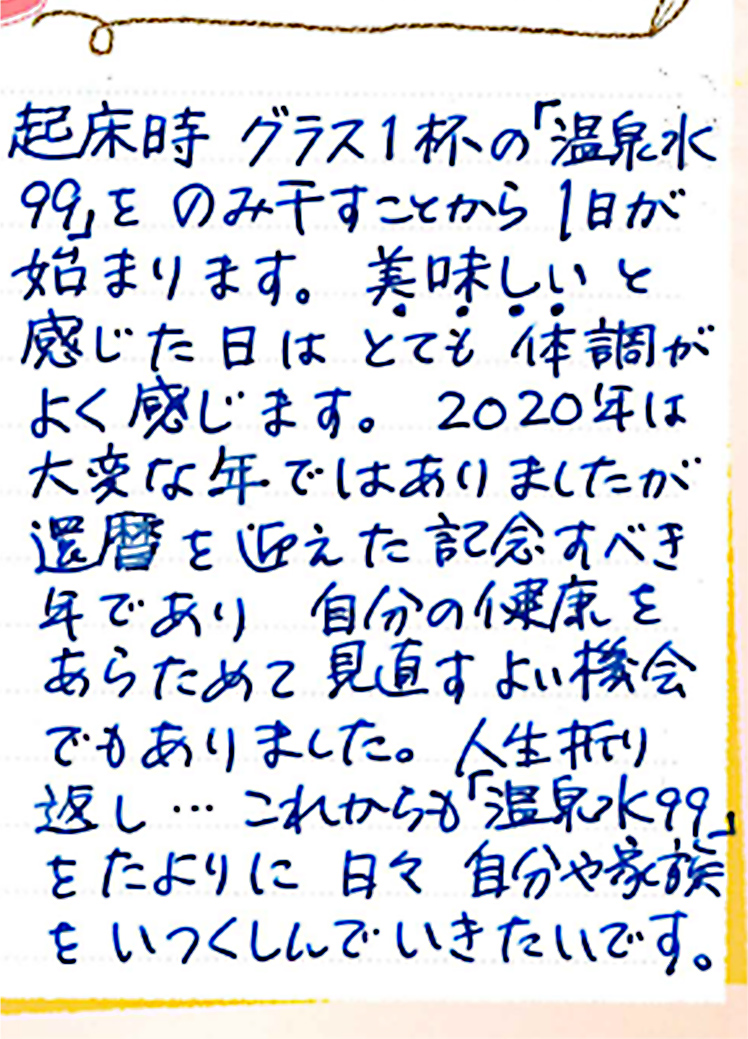 起床時 グラス1杯の「温泉水
99」を のみ干すことから 1日が
始まります。 美味しいと
感じた日は とても 体調が
よく感じます。 2020年は
大変な年ではありましたが
還暦を迎えた記念すべき
年であり 自分の健康を
あらためて見直すよい機会
でもありました。人生折り
返し… これからも「温泉水99」
をたよりに 日々 自分や家族
をいつくしんでいきたいです。